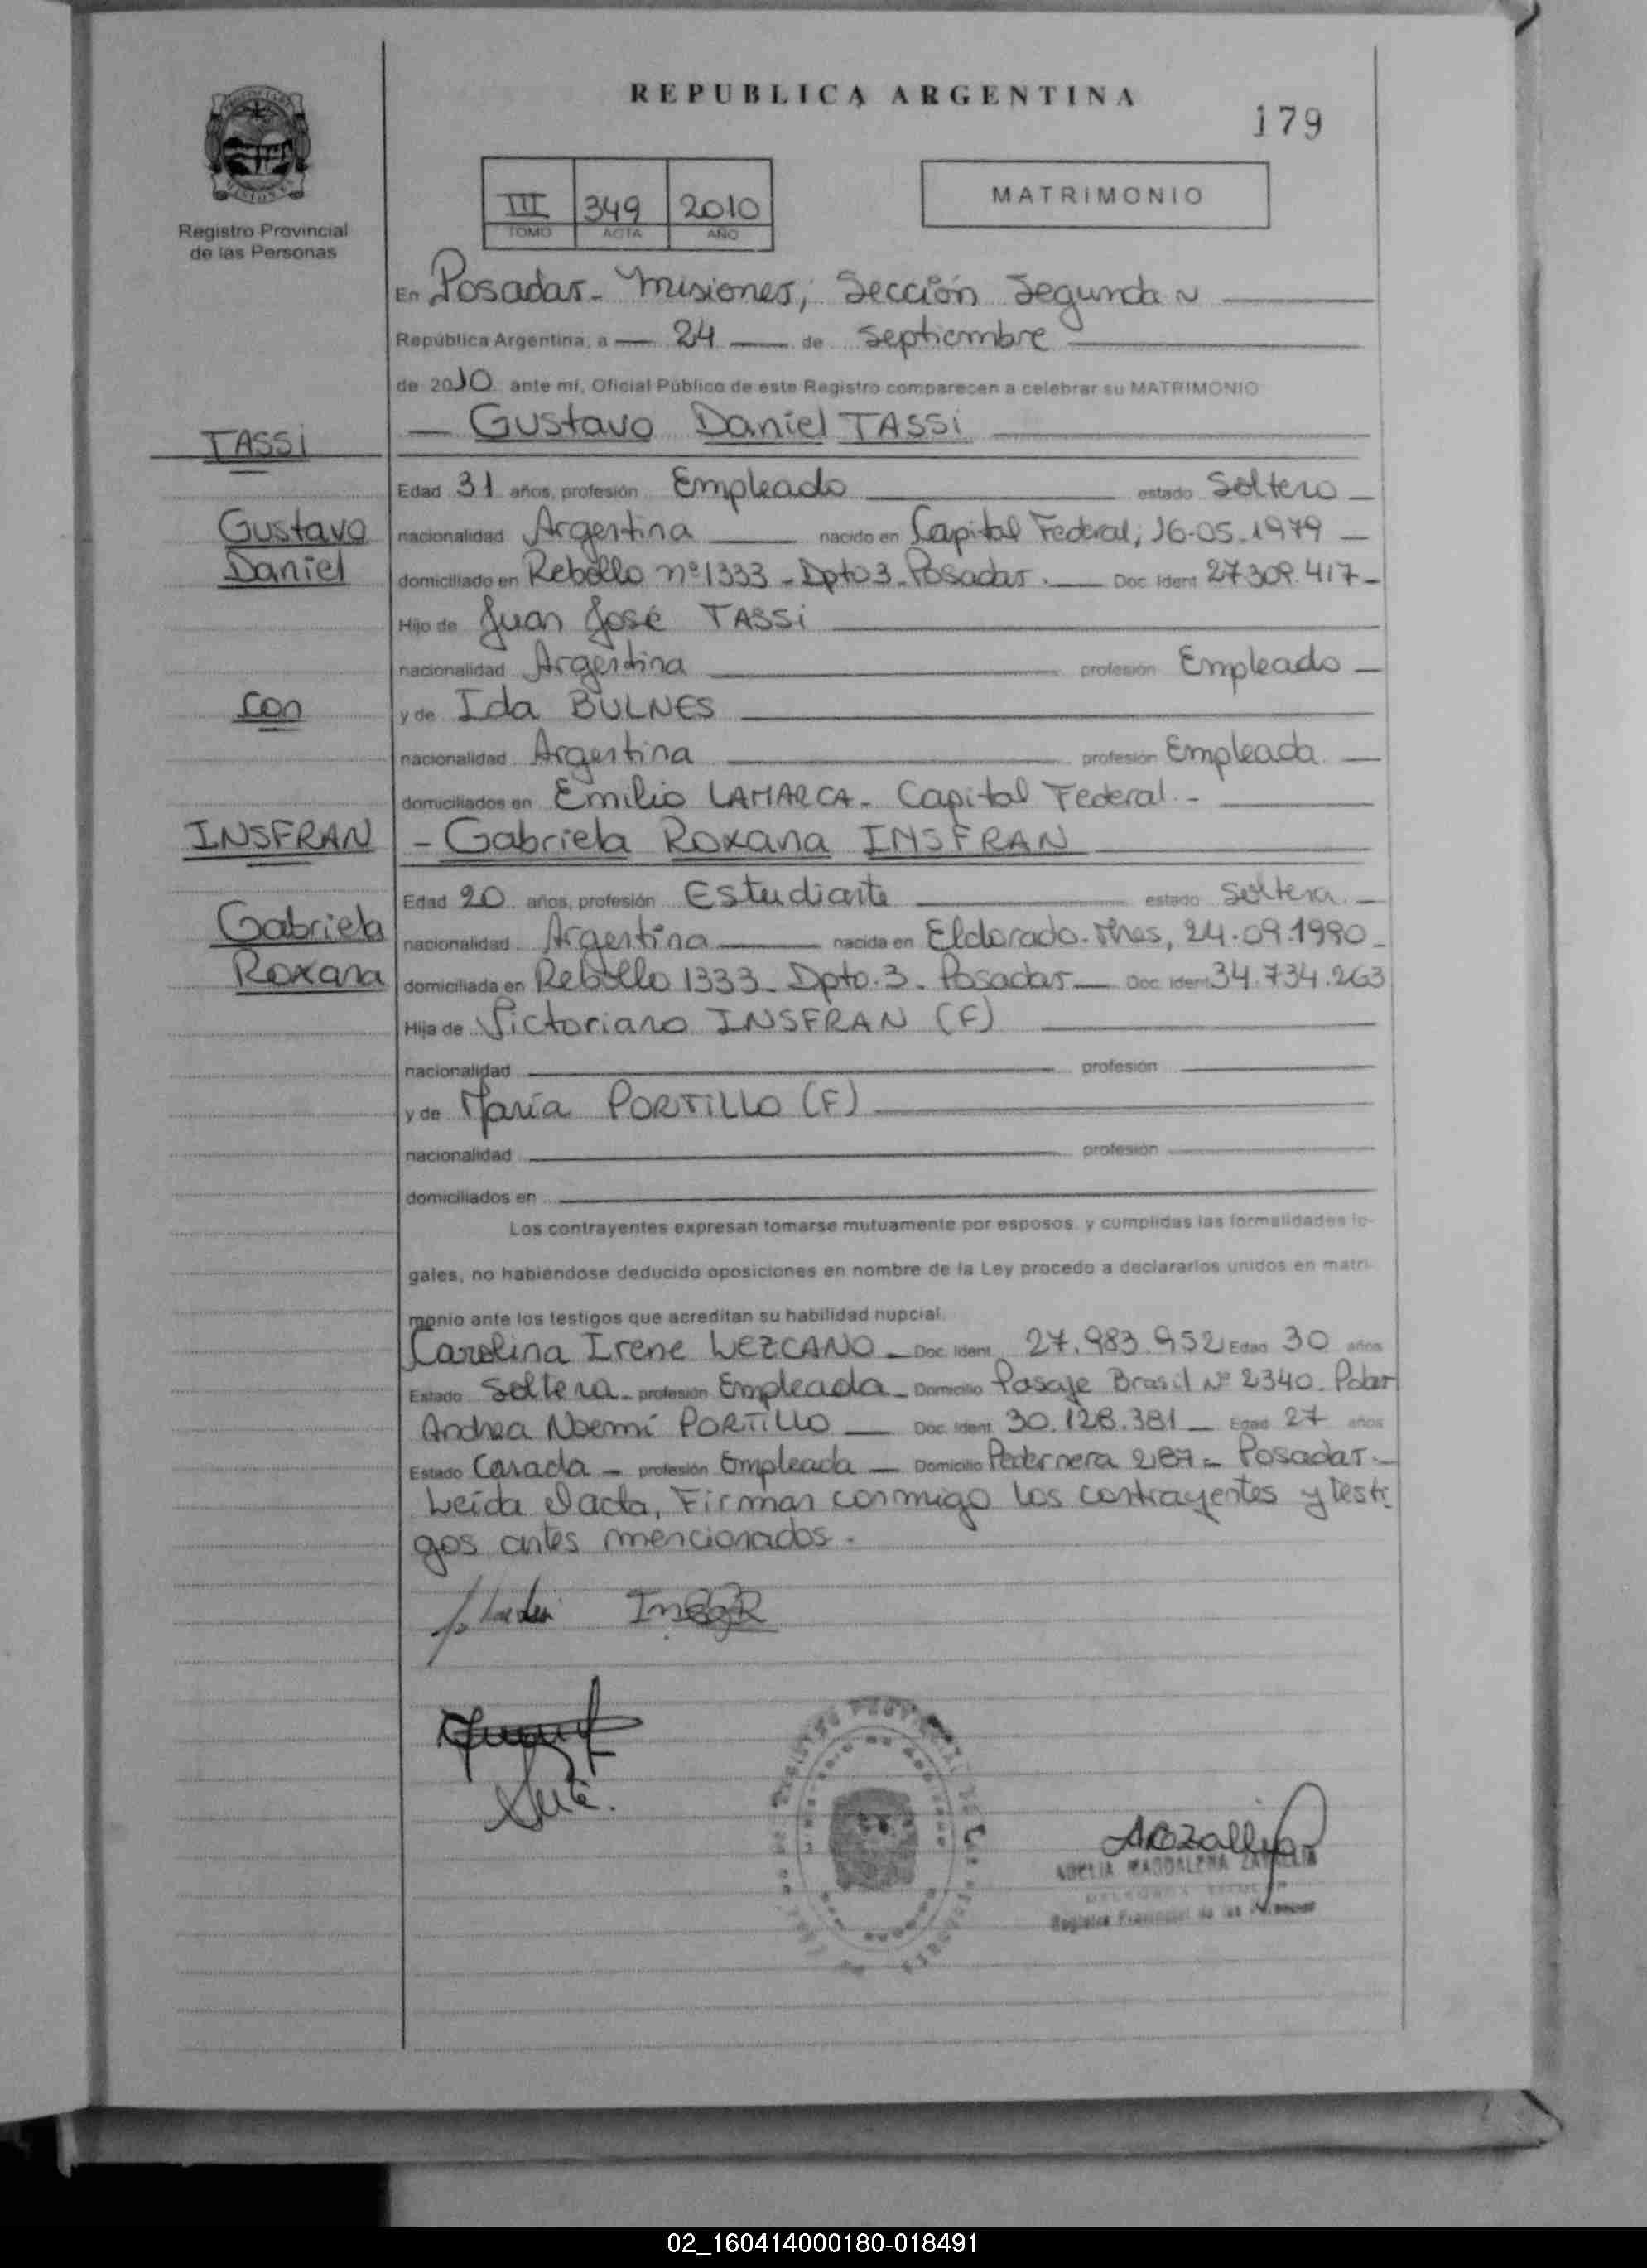 REPUBLICA ARGENTINA
179
Registro Provincial
de las Personas
III 349 2010
TOMO ACTA AÑO
MATRIMONIO
En Posadas - Misiones, Sección Segunda
República Argentina, a 24 de septiembre
de 2010 ante mí, Oficial Público de este Registro comparecen a celebrar su MATRIMONIO
Gustavo Daniel TASSi
TASSi
Edad 31 años, profesión Empleado estado Soltero
Gustavo
nacionalidad Argentina nacido en Capital Federal, 16-05-1979
Daniel
domiciliado en Rebollo nº 1333 - Dpto 3 - Posadas. Doc. Ident 27.309.417
Hijo de Juan José TASSi
nacionalidad Argentina profesión Empleado
con
y de Ida BULNES
nacionalidad Argentina profesión Empleada
domiciliados en Emilio LAMARCA - Capital Federal. -
INSFRAN
- Gabriela Roxana INSFRAN
Edad 20 años, profesión Estudiante estado Soltera
Gabriela
nacionalidad Argentina nacida en Eldorado - Mnes, 24-09-1990
Roxana
domiciliada en Rebollo 1333 - Dpto. 3 - Posadas Doc. Ident 34.734.263
Hija de Victoriano INSFRAN (F)
nacionalidad profesión
y de María PORTILLO (F)
nacionalidad profesión
domiciliados en
Los contrayentes expresan tomarse mutuamente por esposos, y cumplidas las formalidades le-
gales, no habiéndose deducido oposiciones en nombre de la Ley procedo a declararlos unidos en matri-
monio ante los testigos que acreditan su habilidad nupcial.
Carolina Irene LEZCANO - Doc. Ident. 27.983.952 Edad 30 años
Estado Soltera - profesión Empleada - Domicilio Pasaje Brasil Nº 2340 -
Andrea Noemí PORTILLO Doc. Ident. 30.128.381 - Edad 27 años
Estado Casada - profesión Empleada - Domicilio Pedernera 2187 - Posadas. -
Leída el acta, Firman conmigo los contrayentes y testi
gos antes mencionados.
ADELIA MAGDALENA
Registro Provincial de las Personas
02_160414000180-018491